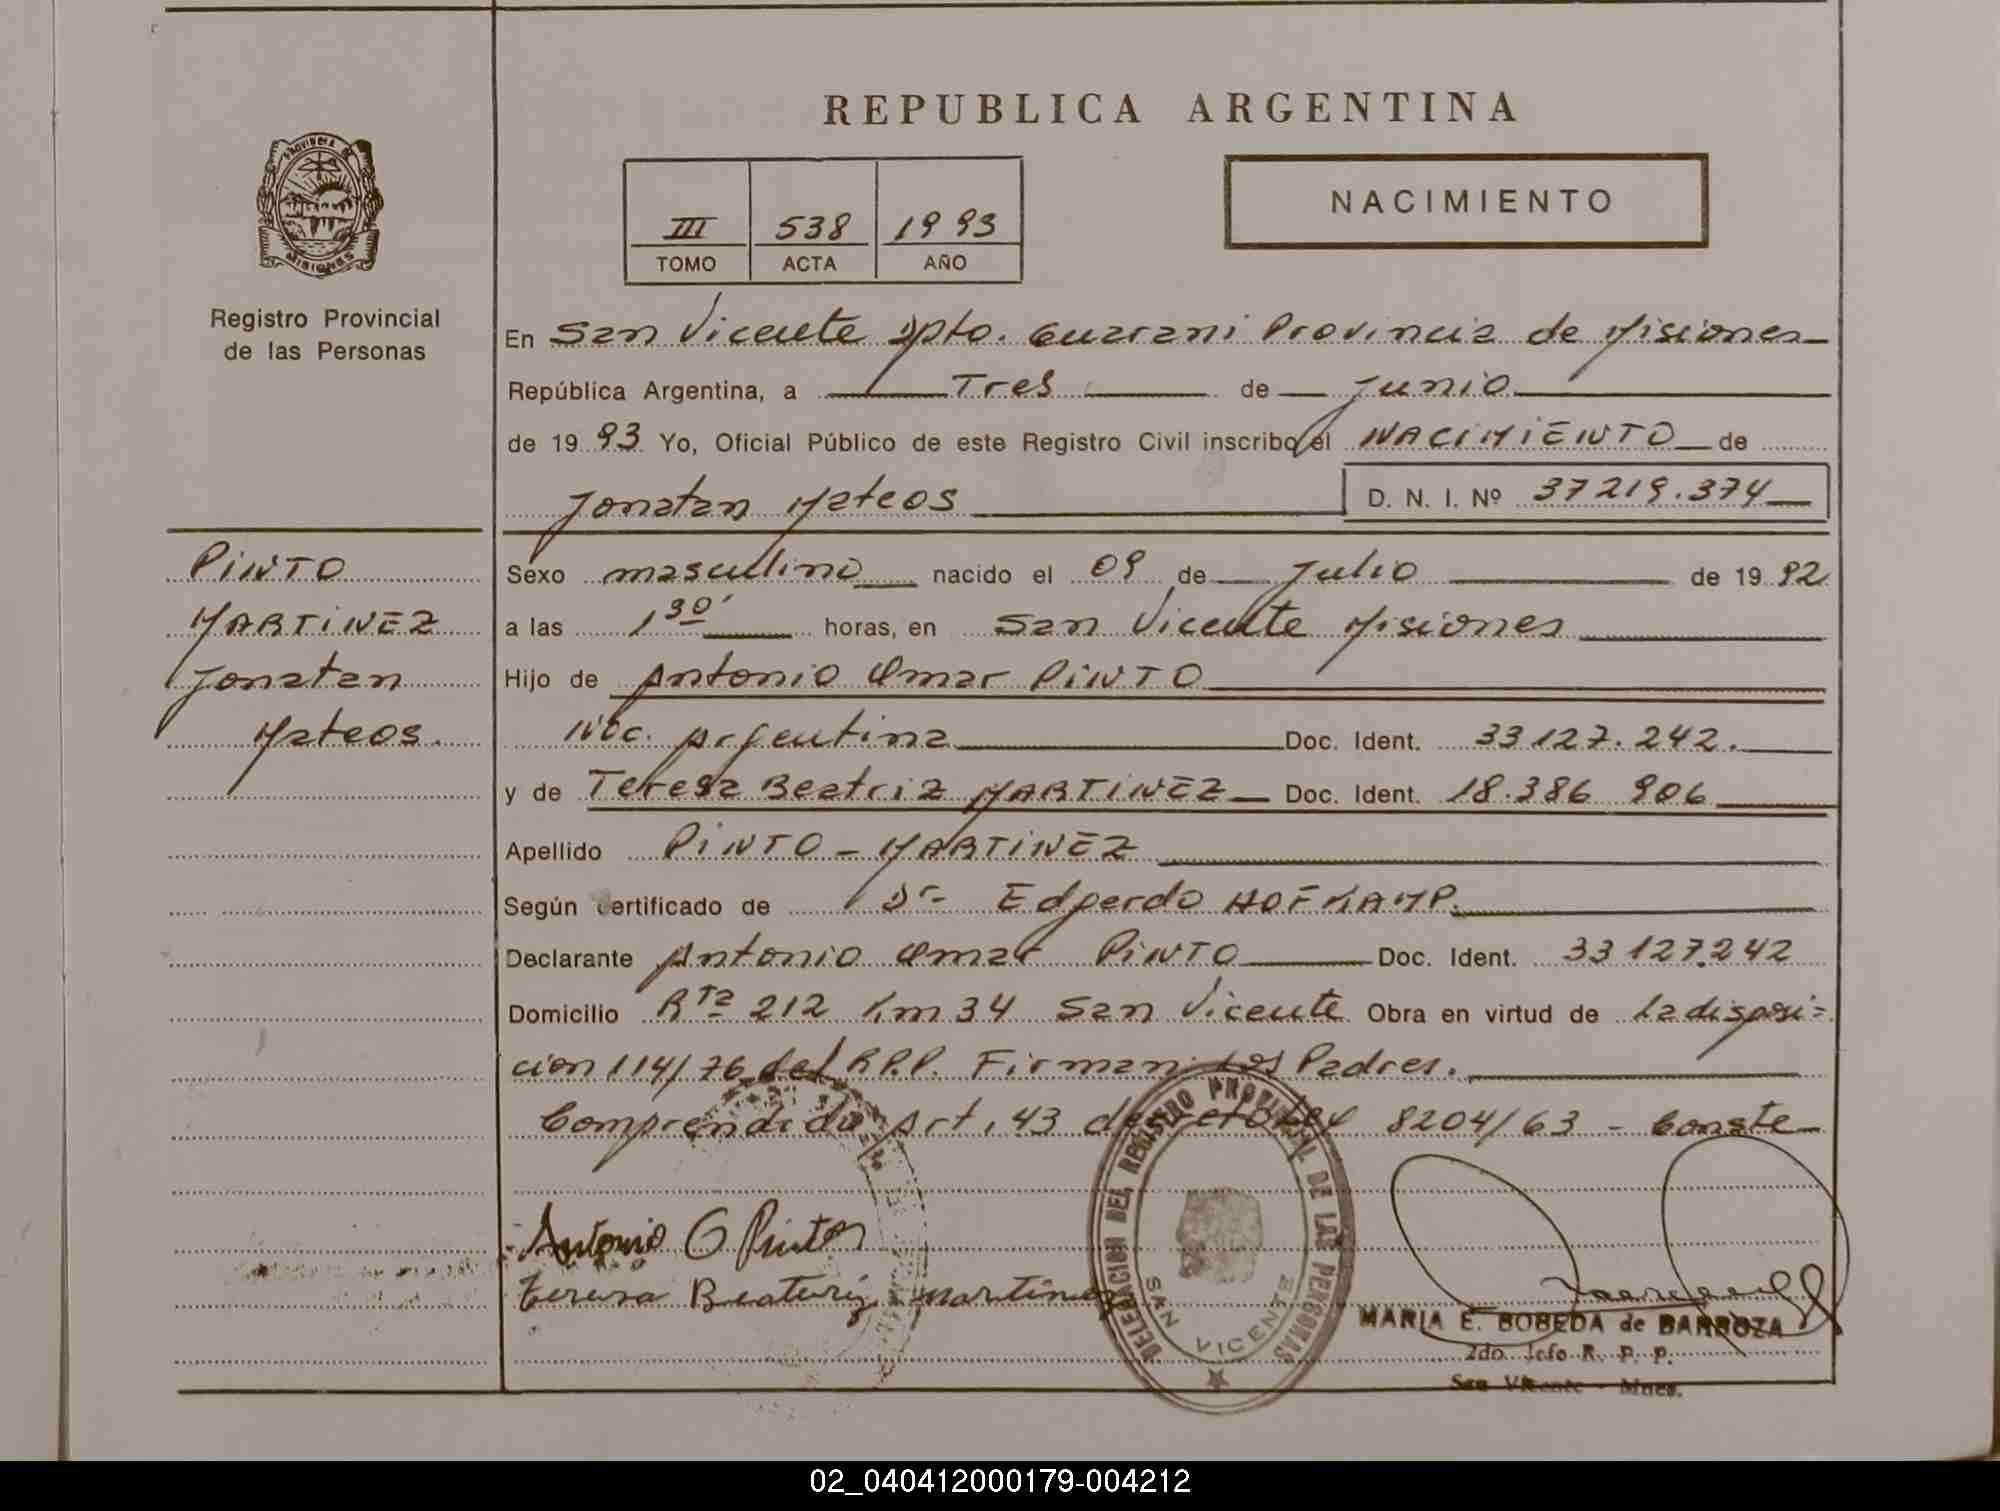 REPUBLICA ARGENTINA
PROVINCIA DE
MISIONES
Registro Provincial
de las Personas
III 538 1993
TOMO ACTA AÑO
NACIMIENTO
En San Vicente Dpto. Guarani Provincia de Misiones
República Argentina, a Tres de Junio
de 19 93 Yo, Oficial Público de este Registro Civil inscribo el NACIMIENTO de
Jonatan Mateos D. N. I. Nº 37219.374
PINTO
MARTINEZ
Jonatan
Mateos.
Sexo masculino nacido el 09 de Julio de 19 92
a las 1 30' horas, en San Vicente Misiones
Hijo de Antonio Omar PINTO
Nac. Argentina Doc. Ident. 33127.242.
y de Teresa Beatriz MARTINEZ Doc. Ident. 18.386 906
Apellido PINTO - MARTINEZ
Según certificado de Dr Edgardo HOFKAMP.
Declarante Antonio Omar PINTO Doc. Ident. 33127.242
Domicilio Rta 212 Km 34 San Vicente Obra en virtud de la disposi=
cion 114/76 del R.P.P. Firman los Padres.
Comprendido Art. 43 decreto ley 8204/63 - Conste
Antonio O Pinto
teresa Beatriz martinez
DELEGACION DEL REGISTRO PROVINCIAL DE LAS PERSONAS
SAN VICENTE
MARIA E. BOBEDA de BARBOZA
2do. Jefe R. P. P.
San Vicente - Mnes.
02_040412000179-004212